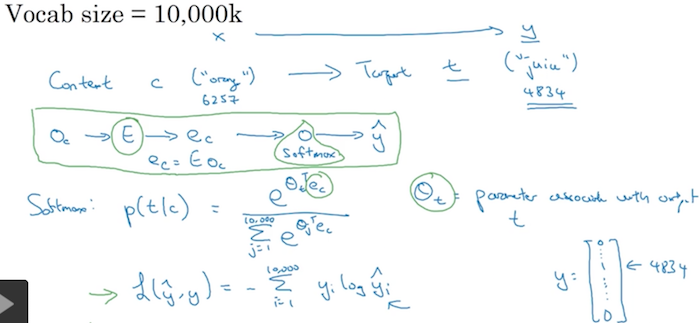 Vocab size = 10,000k
x → y
Context c ("orange") → Target t ("juice")
6257 4834
O_c → E → e_c → O → ŷ
softmax
e_c = E O_c
Softmax: p(t|c) = e^{θ_t^T e_c} / Σ_{j=1}^{10,000} e^{θ_j^T e_c}
θ_t = parameter associated with output t
→ L(ŷ, y) = - Σ_{i=1}^{10,000} y_i log ŷ_i
y = [0 ⋮ 1 ⋮ 0] ← 4834